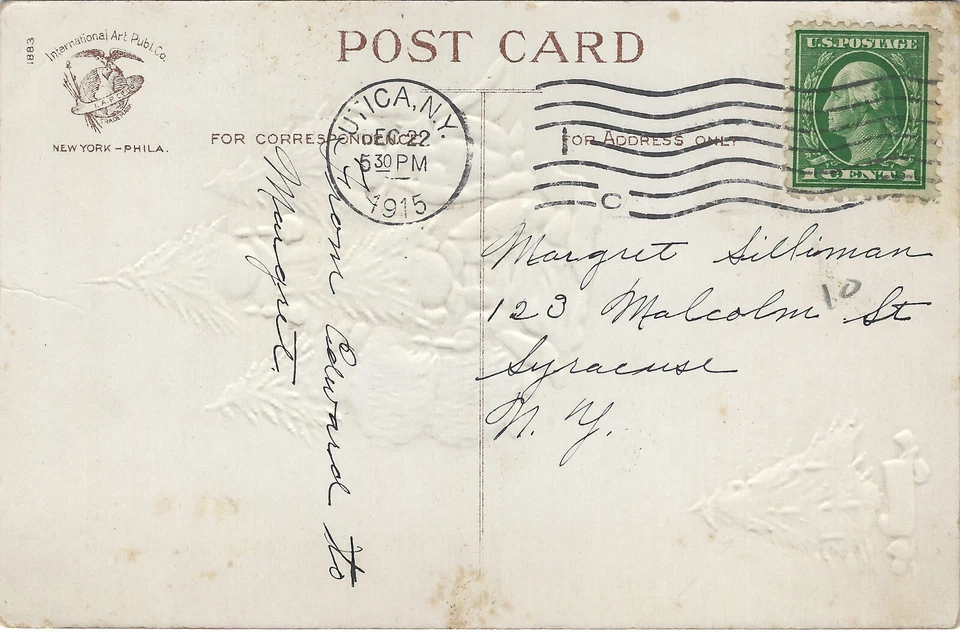 1883
International Art Publ. Co.
I.A.P. Co.
TRADEMARK
NEW YORK – PHILA.
POST CARD
FOR CORRESPONDENCE
FOR ADDRESS ONLY
UTICA, N.Y.
DEC 22
5 30 PM
1915
1
C
U.S. POSTAGE
1 CENT 1
From Edward to
Margret.
Margret Silliman
10
123 Malcolm St
Syracuse
N. Y.